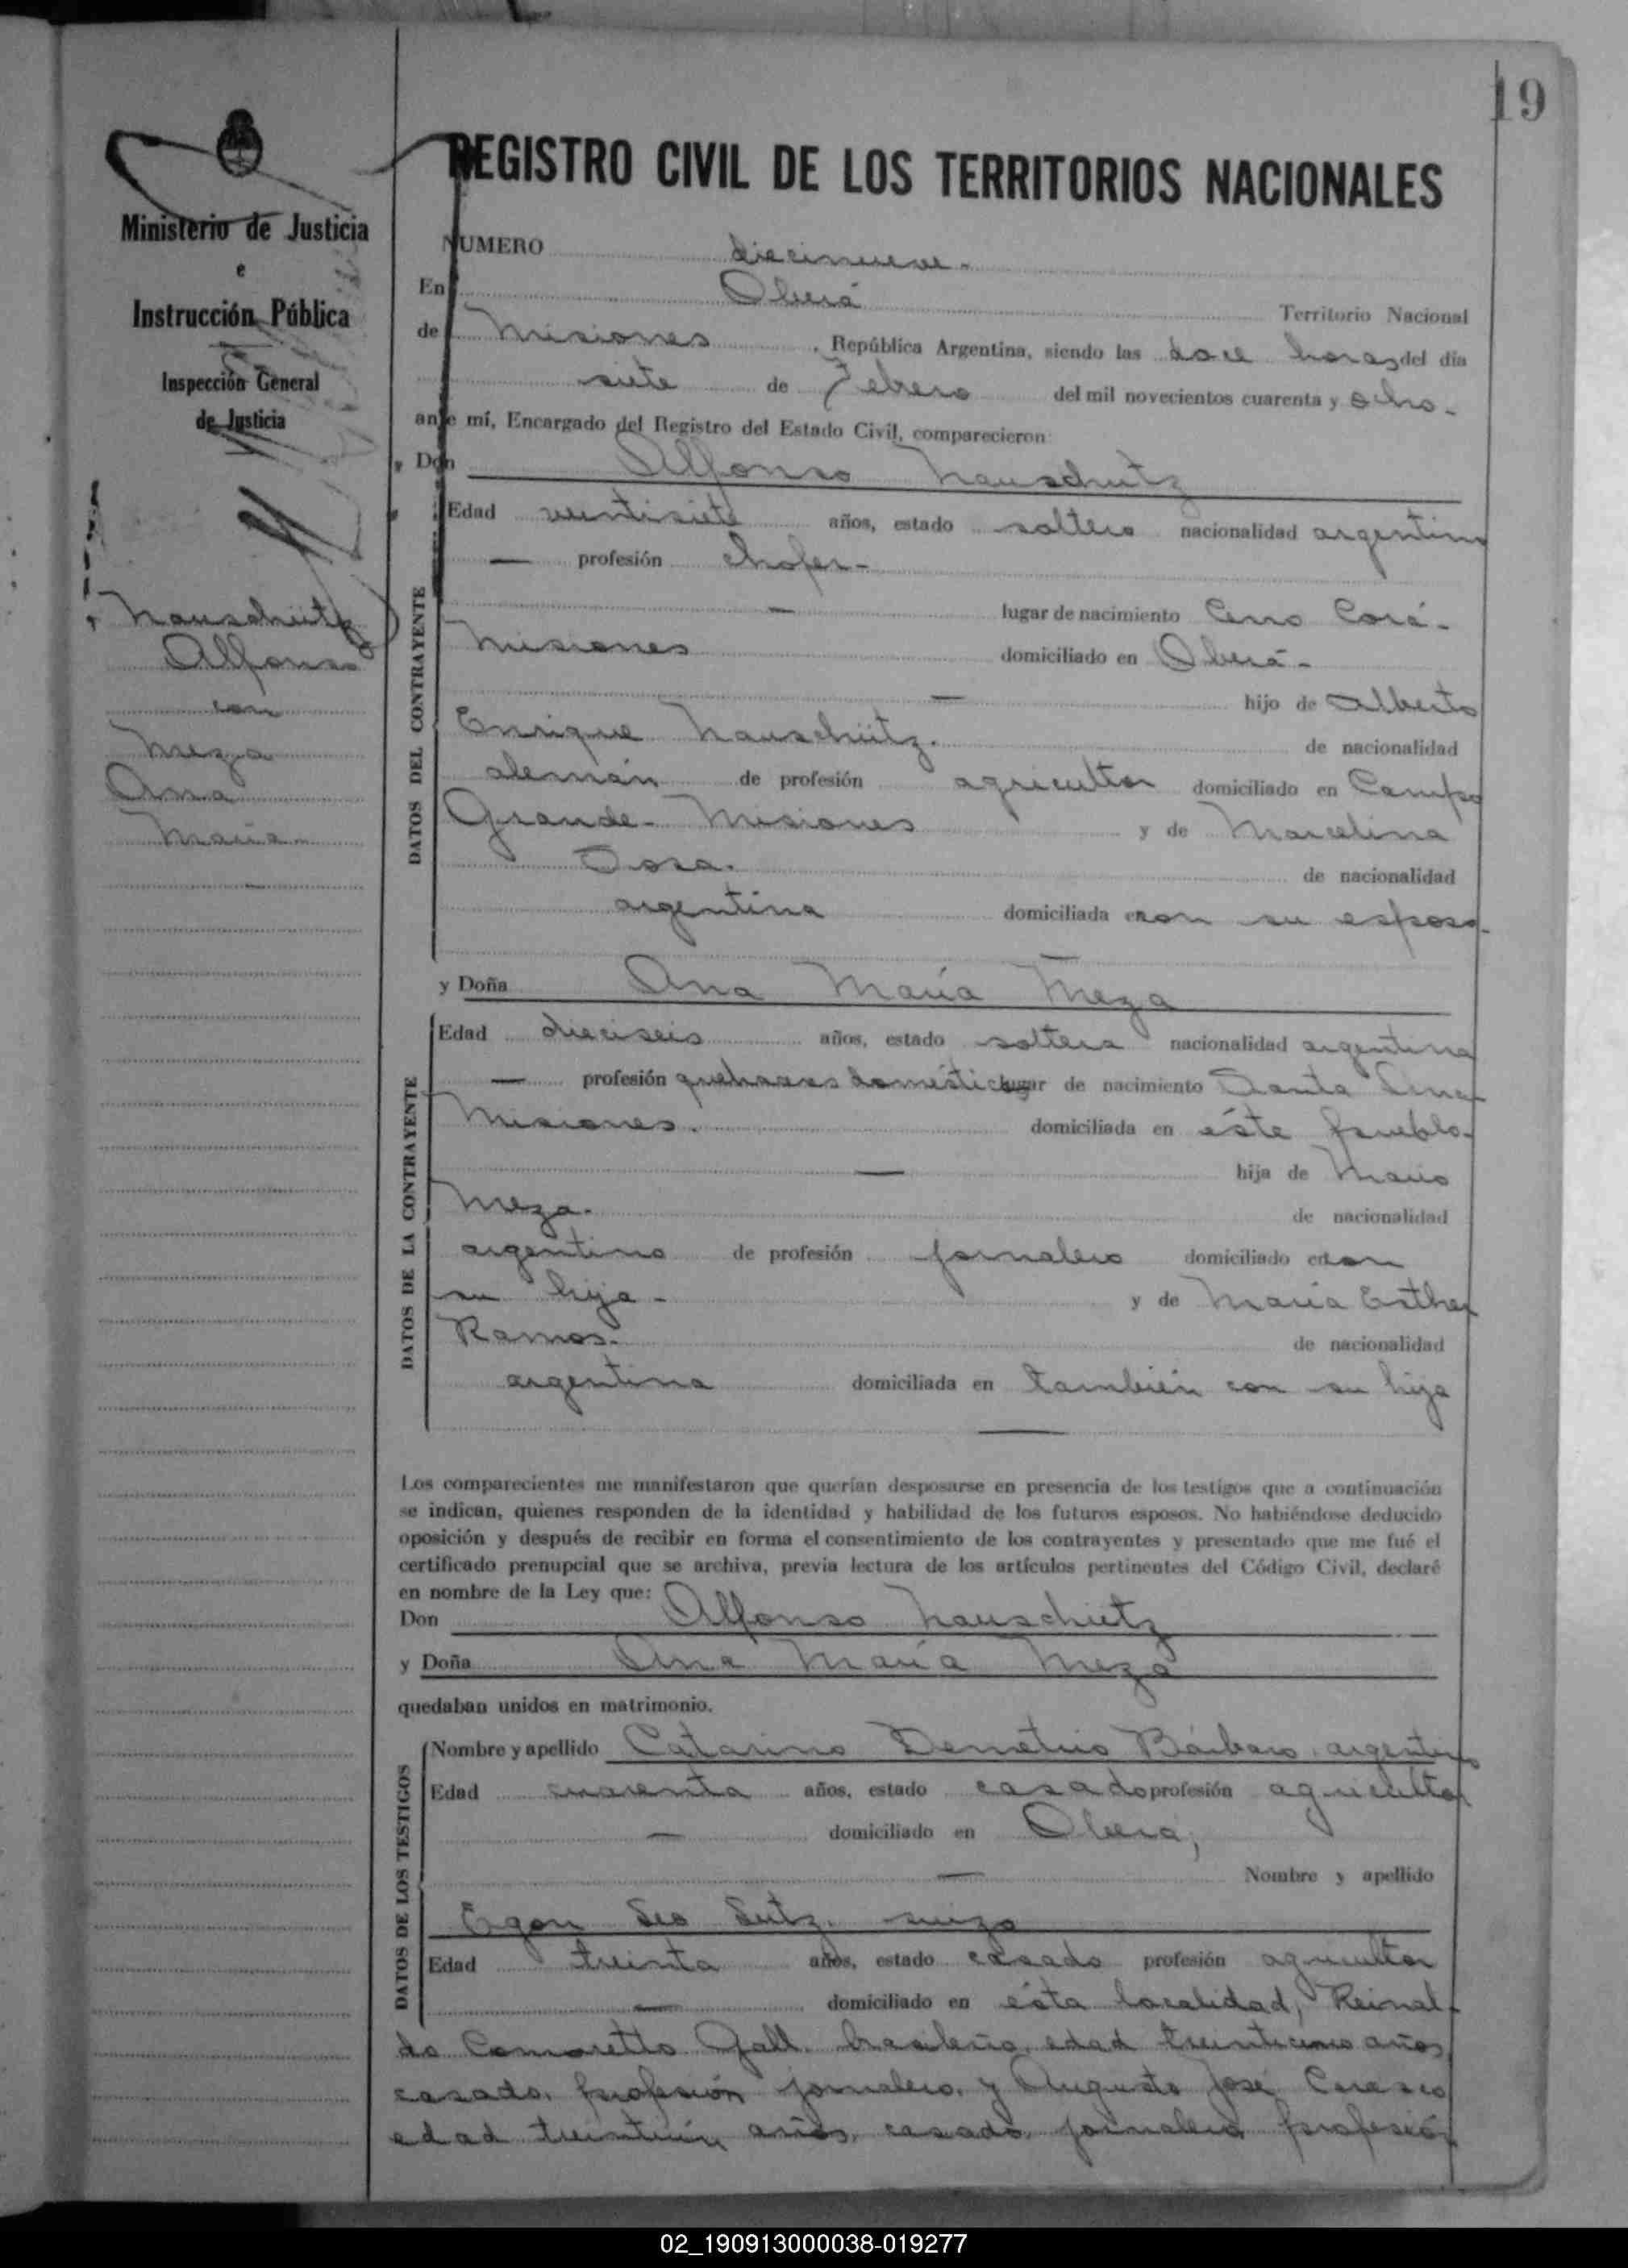 19
REGISTRO CIVIL DE LOS TERRITORIOS NACIONALES
Ministerio de Justicia
e
Instrucción Pública
Inspección General
de Justicia
NUMERO diecinueve.-
En Oberá Territorio Nacional
de Misiones, República Argentina, siendo las doce horas del día
siete de Febrero del mil novecientos cuarenta y ocho.-
ante mí, Encargado del Registro del Estado Civil, comparecieron:
Don Alfonso Nauschutz
Edad veintisiete años, estado soltero nacionalidad argentino
— profesión chofer-
— lugar de nacimiento Cerro Corá-
Misiones domiciliado en Oberá-
— hijo de Alberto
Enrique Nauschütz. de nacionalidad
alemán de profesión agricultor domiciliado en Campo
Grande- Misiones y de Marcelina
Sosa. de nacionalidad
argentina domiciliada con su esposo-
DATOS DEL CONTRAYENTE
Nauschütz
Alfonso
con
Meza
Ana
María
y Doña Ana María Meza
Edad dieciseis años, estado soltera nacionalidad argentina
— profesión quehaceres domésticos lugar de nacimiento Santa Ana-
Misiones. domiciliada en éste pueblo-
— hija de Mario
Meza. de nacionalidad
argentino de profesión jornalero domiciliado con
su hija- y de María Esther
Ramos. de nacionalidad
argentina domiciliada en también con su hija
DATOS DE LA CONTRAYENTE
Los comparecientes me manifestaron que querían desposarse en presencia de los testigos que a continuación
se indican, quienes responden de la identidad y habilidad de los futuros esposos. No habiéndose deducido
oposición y después de recibir en forma el consentimiento de los contrayentes y presentado que me fué el
certificado prenupcial que se archiva, previa lectura de los artículos pertinentes del Código Civil, declaré
en nombre de la Ley que:
Don Alfonso Nauschutz
y Doña Ana María Meza
quedaban unidos en matrimonio.
Nombre y apellido Catarino Demetrio Bárbaro, argentino
Edad cuarenta años, estado casado profesión agricultor
— domiciliado en Oberá,
— Nombre y apellido
Egon suizo
Edad treinta años, estado casado profesión agricultor
— domiciliado en ésta localidad, Reinal-
do Comoretto Gall, brasileño, edad años,
casado, profesión jornalero, y Augusto José
edad treintiún años, casado, jornalero profesión
DATOS DE LOS TESTIGOS
02_190913000038-019277